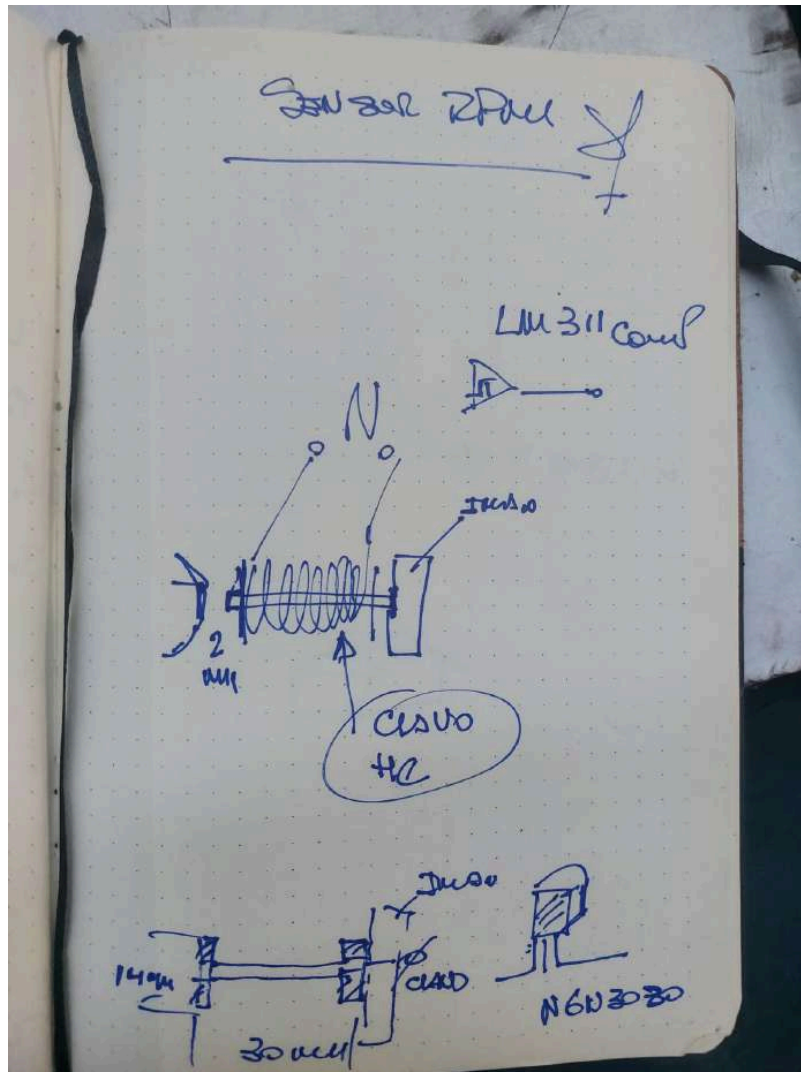 SENSOR RPM
LM311 COMP
N
IMAN
2
mm
CLAVO
HC
IMAN
14mm
CLAVO
30mm